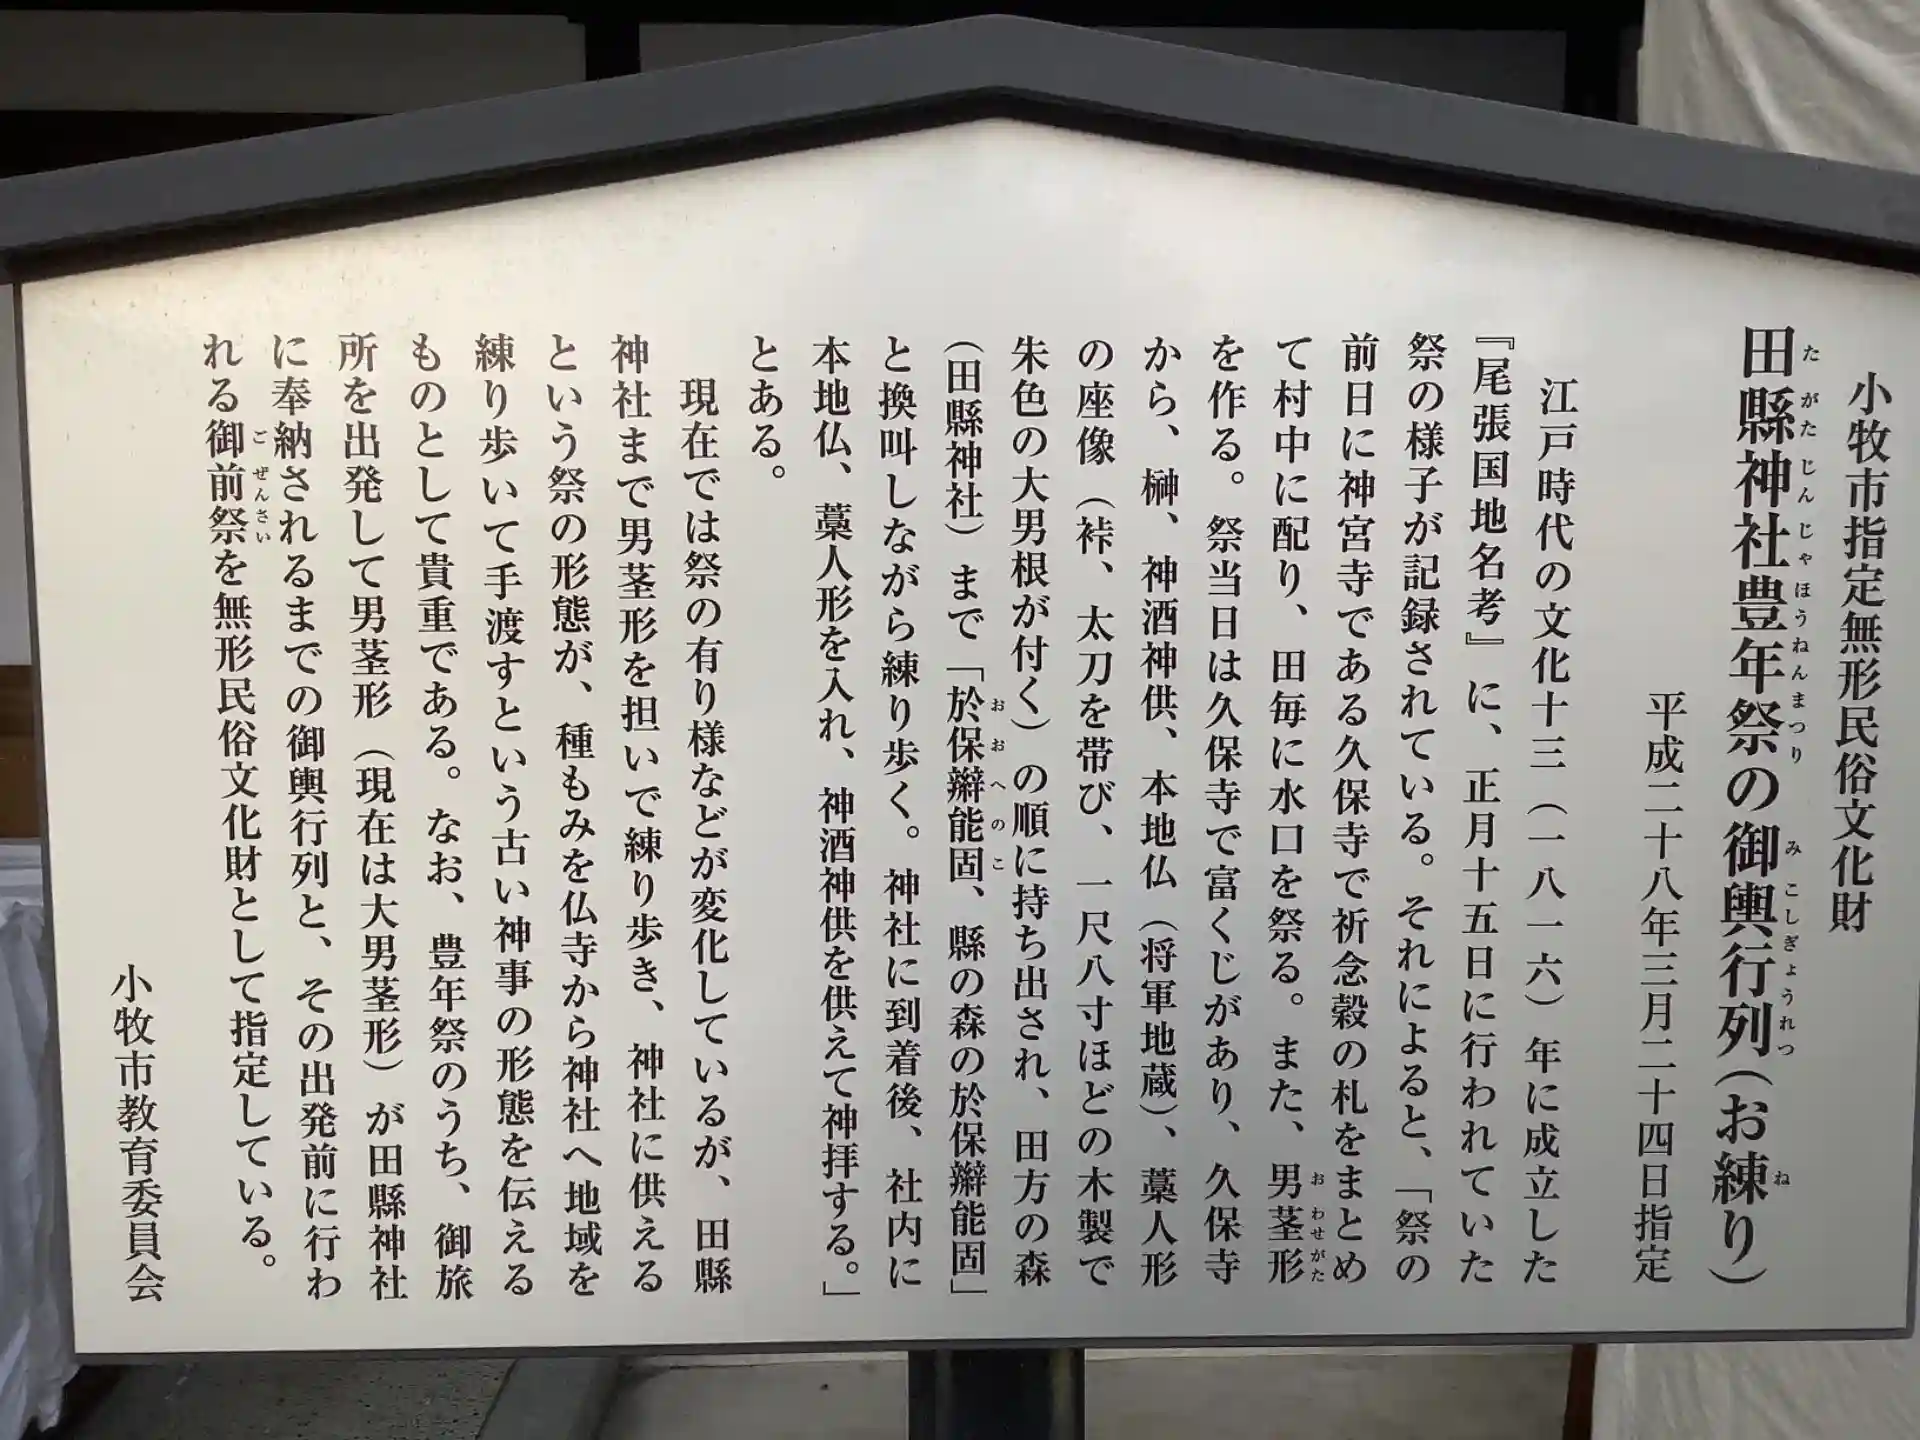 小牧市指定無形民俗文化財
田縣神社豊年祭の御輿行列(お練り)
たがたじんじゃほうねんまつり みこしぎょうれつ ね
平成二十八年三月二十四日指定
江戸時代の文化十三(一八一六)年に成立した
『尾張国地名考』に、正月十五日に行われていた
祭の様子が記録されている。それによると、「祭の
前日に神宮寺である久保寺で祈念穀の札をまとめ
て村中に配り、田毎に水口を祭る。また、男茎形
おわせがた
を作る。祭当日は久保寺で富くじがあり、久保寺
から、榊、神酒神供、本地仏(将軍地蔵)、藁人形
の座像(裃、太刀を帯び、一尺八寸ほどの木製で
朱色の大男根が付く)の順に持ち出され、田方の森
(田縣神社)まで「於保辧能固、縣の森の於保辧能固」
おおへのこ
と換叫しながら練り歩く。神社に到着後、社内に
本地仏、藁人形を入れ、神酒神供を供えて神拝する。」
とある。
現在では祭の有り様などが変化しているが、田縣
神社まで男茎形を担いで練り歩き、神社に供える
という祭の形態が、種もみを仏寺から神社へ地域を
練り歩いて手渡すという古い神事の形態を伝える
ものとして貴重である。なお、豊年祭のうち、御旅
所を出発して男茎形(現在は大男茎形)が田縣神社
に奉納されるまでの御輿行列と、その出発前に行わ
れる御前祭を無形民俗文化財として指定している。
ごぜんさい
小牧市教育委員会